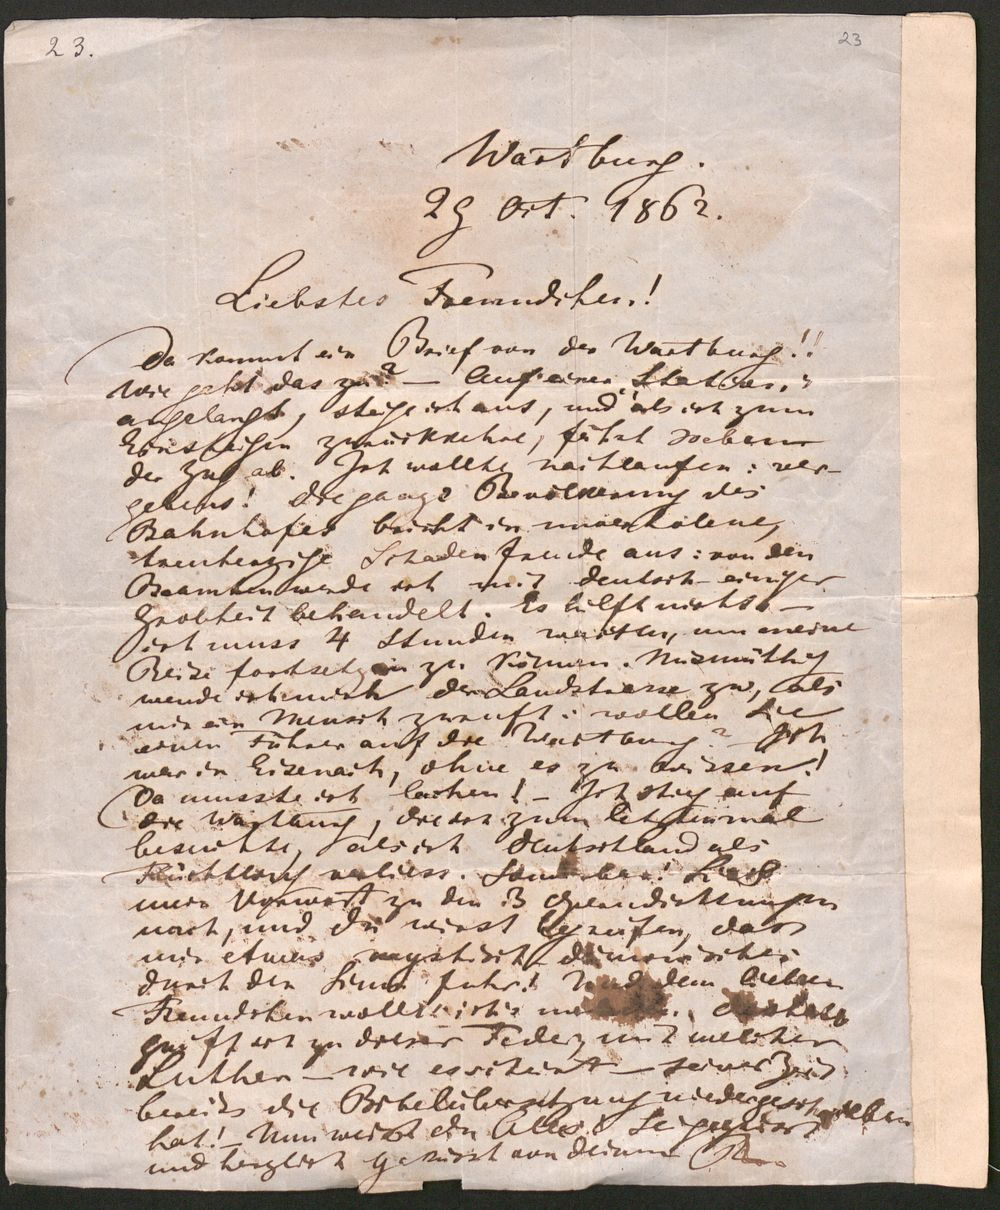 23.
23
Wartburg.
29 Oct. 1862.
Liebstes Freundchen!
Da kommt ein Brief von der Wartburg!!
Wie geht das zu? — Auf einer Station
angelangt, steige ich aus, und als ich zum
Einsteigen zurückkehre, fährt soeben
der Zug ab. Ich wollte nachlaufen: ver-
gebens! Die ganze Bevölkerung des
Bahnhofes bricht in unverholene,
treuherzige Schadenfreude aus: von den
Beamten werde ich mit deutsch-einiger
Grobheit behandelt. Es hilft nichts —
ich muss 4 Stunden warten, um meine
Reise fortsetzen zu können. Missmüthig
wende ich mich der Landstrasse zu, als
mir ein Mensch zuruft: wollen Sie
einen Führer auf die Wartburg? — Ich
war in Eisenach, ohne es zu wissen!
Da musste ich lachen! — Ich stieg auf
die Wartburg, die ich zum letztenmal
besuchte, als ich Deutschland als
Flüchtling verliess. Sonderbar! Lies
mein Vorwort zu den 3 Operndichtungen
nach, und du wirst begreifen, dass
mir etwas mystisch-dämonisches
durch den Sinn fuhr! Und dem lieben
Freundchen wollt' ich's
griff ich zu dieser Feder, mit welcher
Luther — wie es scheint — seiner Zeit
bereits die Bibelübersetzung niedergeschrieben
hat! — Nun weisst du Alles! Sei gegrüsst
und herzlich geküsst von deinem